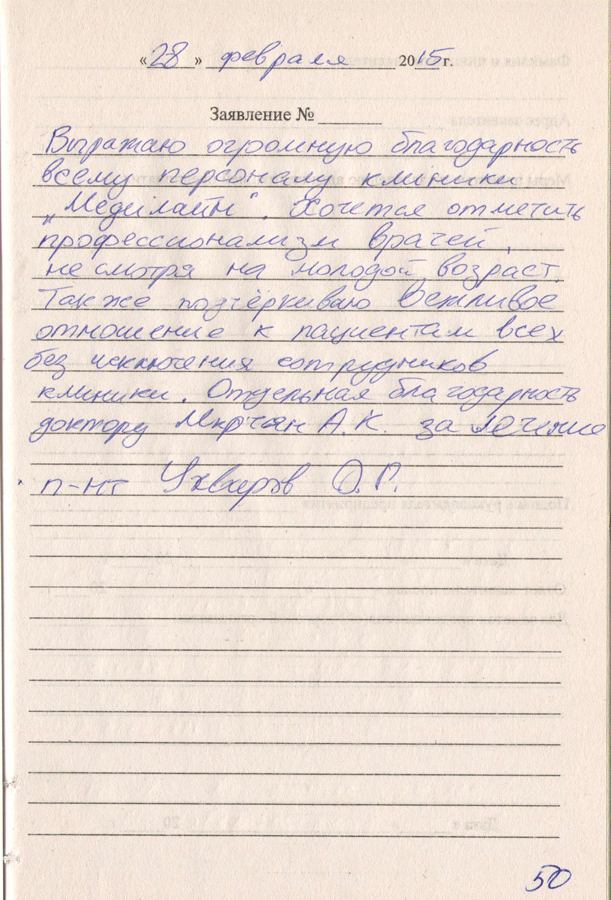 «28» февраля 2015 г.
Заявление № ______
Выражаю огромную благодарность
всему персоналу клиники
„Медилайн". Хочется отметить
профессионализм врачей,
не смотря на молодой возраст.
Также подчёркиваю вежливое
отношение к пациентам всех
без исключения сотрудников
клиники. Отдельная благодарность
доктору Мкртчян А.К. за лечение
п-нт О.Г.
50